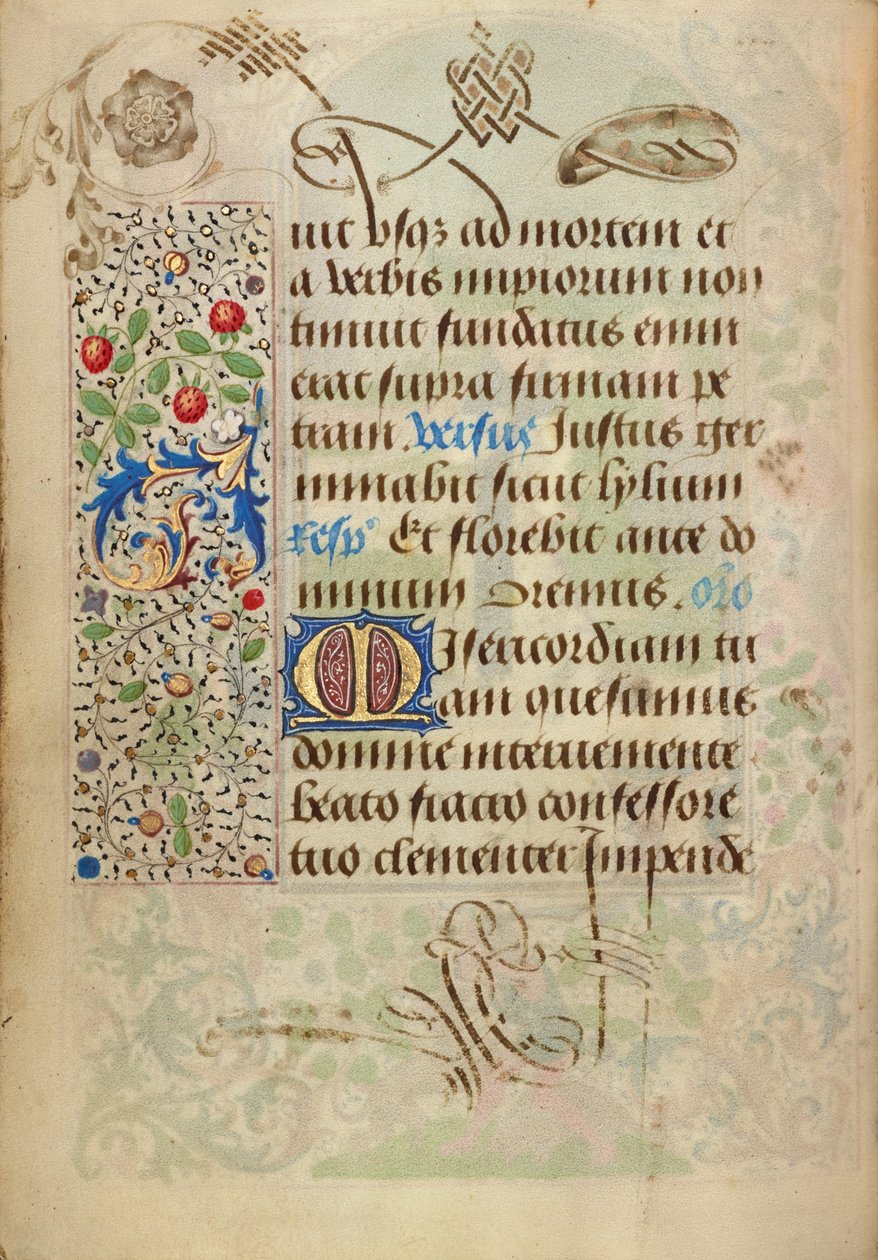 uit vsqz ad mortem et
a verbis impiorum non
timuit fundatus enim
erat supra firmam pe
tram. versus Justus ger
minabit sicut lylium
Resp⁹ Et florebit ante do
minum Oremus. Oro
Misericordiam tu
am quesumus
domine interueniente
beato fiacro confessore
tuo clementer Impende